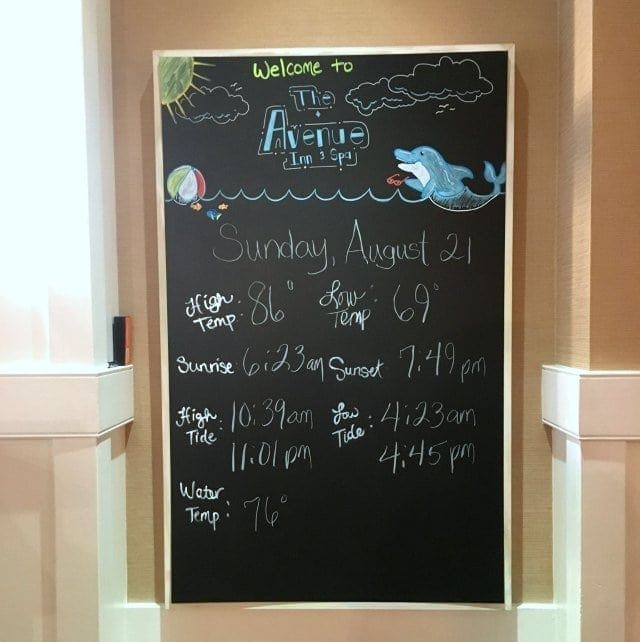 Welcome to
The
Avenue
Inn & Spa
Sunday, August 21
High Temp: 86° Low Temp: 69°
Sunrise 6:23am Sunset: 7:49 pm
High Tide: 10:39am Low Tide: 4:23am
11:01 pm 4:45 pm
Water Temp: 76°